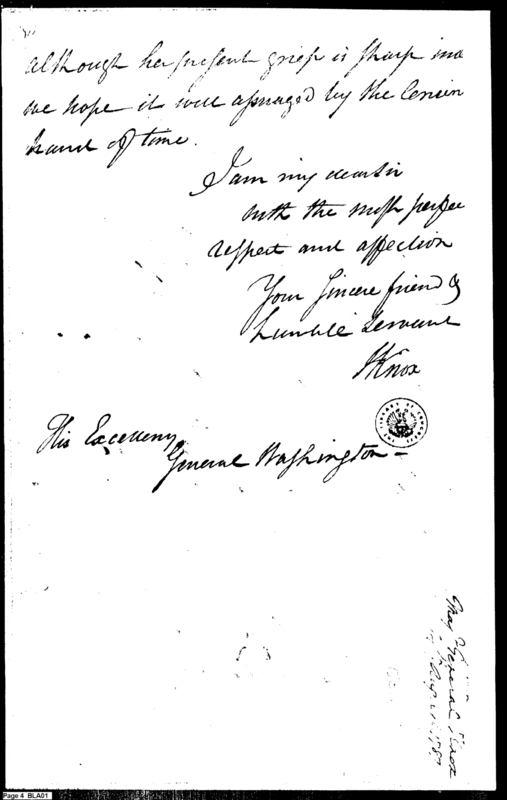 although her present grief is sharp ind
we hope it will assuaged by the lenien
hand of time.
I am my dear sir
with the most perfec
respect and affection
Your sincere friend &
humble servant
HKnox
His Excellency
General Washington –
THE LIBRARY OF CONGRESS
General Knox
1787
Page 4 BLA01